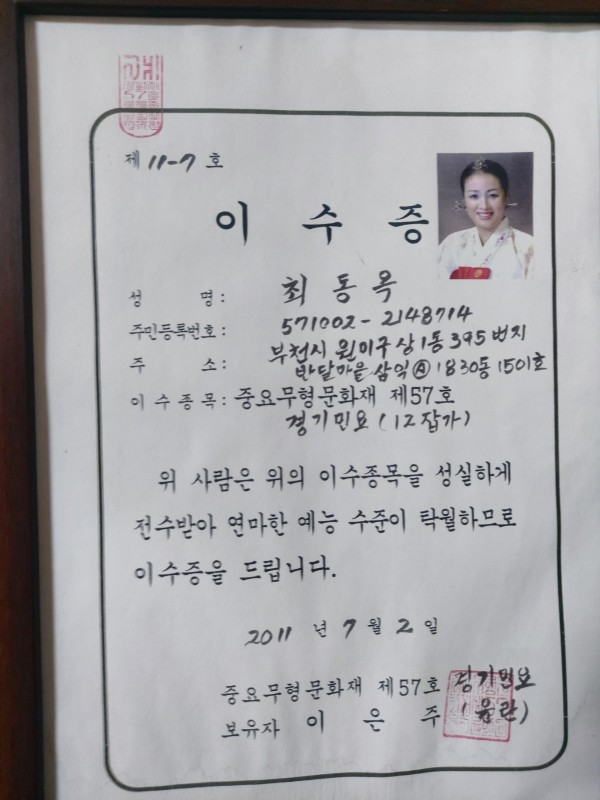 제 11-7 호
이 수 증
성 명 : 최동옥
주민등록번호 : 571002-2148714
주 소 : 부천시 원미구 상1동 395번지
반달마을 삼익 Ⓐ 1830동 1501호
이 수 종 목 : 중요무형문화재 제57호
경기민요 (12잡가)
위 사람은 위의 이수종목을 성실하게
전수받아 연마한 예능 수준이 탁월하므로
이수증을 드립니다.
2011 년 7 월 2 일
중요무형문화재 제57호 경기민요
보유자 이 은 주 (윤란)